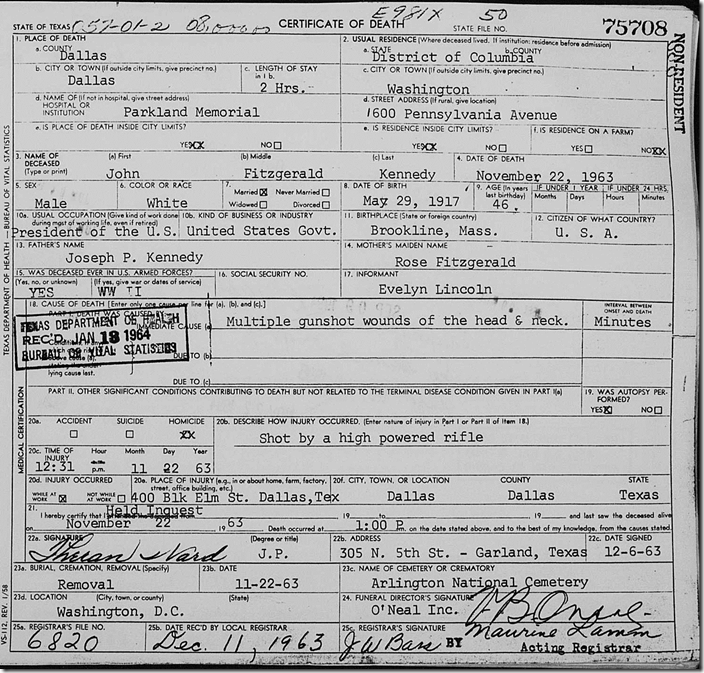 STATE OF TEXAS CERTIFICATE OF DEATH E981X 50 STATE FILE NO. 75708
NON-RESIDENT
1. PLACE OF DEATH 2. USUAL RESIDENCE (Where deceased lived. If institution: residence before admission)
a. COUNTY Dallas a. STATE District of Columbia b. COUNTY
b. CITY OR TOWN (If outside city limits, give precinct no.) Dallas c. LENGTH OF STAY in 1 b. 2 Hrs. c. CITY OR TOWN (If outside city limits, give precinct no.) Washington
d. NAME OF (If not in hospital, give street address) HOSPITAL OR INSTITUTION Parkland Memorial d. STREET ADDRESS (If rural, give location) 1600 Pennsylvania Avenue
e. IS PLACE OF DEATH INSIDE CITY LIMITS? YES XX NO e. IS RESIDENCE INSIDE CITY LIMITS? YES XX NO f. IS RESIDENCE ON A FARM? YES NO XX
3. NAME OF DECEASED (Type or print) (a) First John (b) Middle Fitzgerald (c) Last Kennedy 4. DATE OF DEATH November 22, 1963
5. SEX Male 6. COLOR OR RACE White 7. Married X Never Married Widowed Divorced 8. DATE OF BIRTH May 29, 1917 9. AGE (In years last birthday) 46. IF UNDER 1 YEAR Months Days IF UNDER 24 HRS. Hours Minutes
10a. USUAL OCCUPATION (Give kind of work done during most of working life, even if retired) President of the U.S. 10b. KIND OF BUSINESS OR INDUSTRY United States Govt. 11. BIRTHPLACE (State or foreign country) Brookline, Mass. 12. CITIZEN OF WHAT COUNTRY? U. S. A.
13. FATHER'S NAME Joseph P. Kennedy 14. MOTHER'S MAIDEN NAME Rose Fitzgerald
15. WAS DECEASED EVER IN U.S. ARMED FORCES? (Yes, no, or unknown) YES (If yes, give war or dates of service) WW II 16. SOCIAL SECURITY NO. 17. INFORMANT Evelyn Lincoln
18. CAUSE OF DEATH [Enter only one cause per line for (a), (b), and (c).] INTERVAL BETWEEN ONSET AND DEATH
PART I. DEATH WAS CAUSED BY: IMMEDIATE CAUSE (a) Multiple gunshot wounds of the head & neck. Minutes
TEXAS DEPARTMENT OF HEALTH
REC'D JAN 13 1964
BUREAU OF VITAL STATISTICS
DUE TO (b)
lying cause last.
DUE TO (c)
PART II. OTHER SIGNIFICANT CONDITIONS CONTRIBUTING TO DEATH BUT NOT RELATED TO THE TERMINAL DISEASE CONDITION GIVEN IN PART I(a) 19. WAS AUTOPSY PERFORMED? YES X NO
20a. ACCIDENT SUICIDE HOMICIDE XX 20b. DESCRIBE HOW INJURY OCCURRED. (Enter nature of injury in Part I or Part II of Item 18.) Shot by a high powered rifle
20c. TIME OF INJURY Hour 12:31 p.m. Month 11 Day 22 Year 63
20d. INJURY OCCURRED WHILE AT WORK X NOT WHILE AT WORK 20e. PLACE OF INJURY (e.g., in or about home, farm, factory, street, office building, etc.) 400 Blk Elm St. Dallas,Tex 20f. CITY, TOWN, OR LOCATION Dallas COUNTY Dallas STATE Texas
21. I hereby certify that I Held Inquest 19 to 19 and last saw the deceased alive
on November 22 1963 Death occurred at 1:00 P. m. on the date stated above, and to the best of my knowledge, from the causes stated.
22a. SIGNATURE Theran Ward (Degree or title) J.P. 22b. ADDRESS 305 N. 5th St. - Garland, Texas 22c. DATE SIGNED 12-6-63
23a. BURIAL, CREMATION, REMOVAL (Specify) Removal 23b. DATE 11-22-63 23c. NAME OF CEMETERY OR CREMATORY Arlington National Cemetery
23d. LOCATION (City, town, or county) (State) Washington, D.C. 24. FUNERAL DIRECTOR'S SIGNATURE O'Neal Inc.
25a. REGISTRAR'S FILE NO. 6820 25b. DATE REC'D BY LOCAL REGISTRAR Dec. 11, 1963 25c. REGISTRAR'S SIGNATURE J W Bass BY Maurine
Acting Registrar
TEXAS DEPARTMENT OF HEALTH — BUREAU OF VITAL STATISTICS
MEDICAL CERTIFICATION
VS-112, REV. 1/58